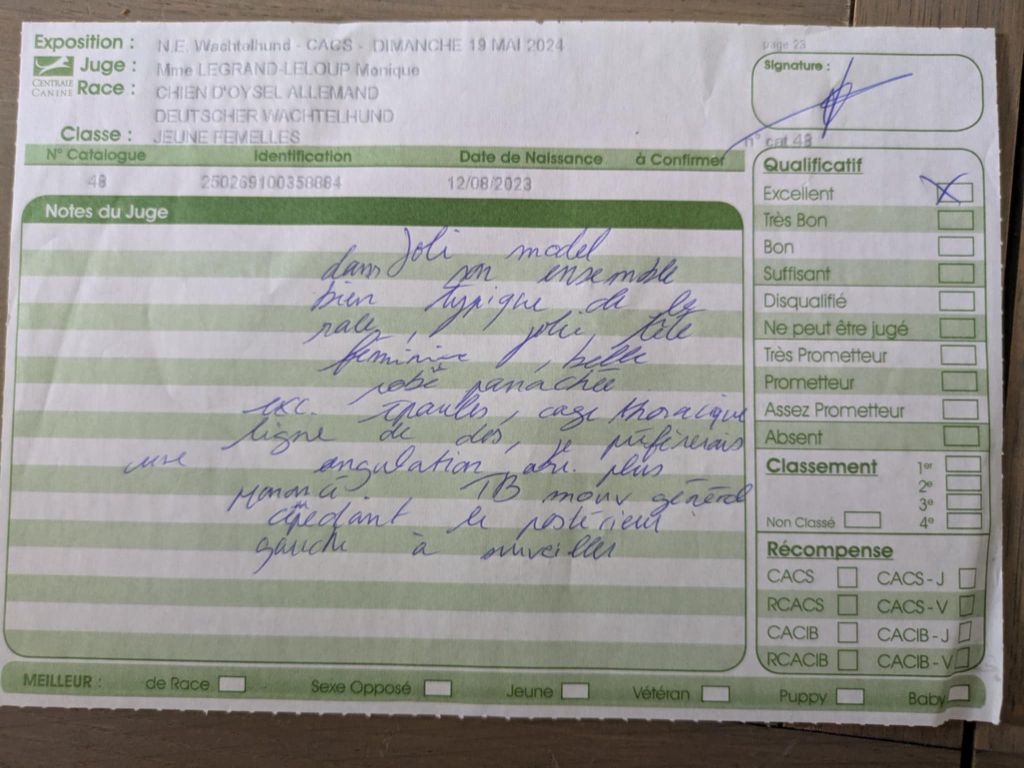 Exposition : N.E. Wachtelhund - CACS - DIMANCHE 19 MAI 2024
Juge : Mme LEGRAND-LELOUP Monique
CENTRALE CANINE
Race : CHIEN D'OYSEL ALLEMAND
DEUTSCHER WACHTELHUND
Classe : JEUNE FEMELLES
page 23
Signature :
n° cat 48
N° Catalogue Identification Date de Naissance à Confirmer
48 250269100358884 12/08/2023
Notes du Juge
Joli model
dans son ensemble
bien typique de la
race, jolie tête
féminine, belle
robe panachée
exc. épaules, cage thoracique
ligne de dos, je préférerais
une angulation plus
TB mouv général
cependant le postérieur
gauche à surveiller
Qualificatif
Excellent
Très Bon
Bon
Suffisant
Disqualifié
Ne peut être jugé
Très Prometteur
Prometteur
Assez Prometteur
Absent
Classement 1er
2e
3e
Non Classé 4e
Récompense
CACS CACS - J
RCACS CACS - V
CACIB CACIB - J
RCACIB CACIB - V
MEILLEUR : de Race Sexe Opposé Jeune Vétéran Puppy Baby